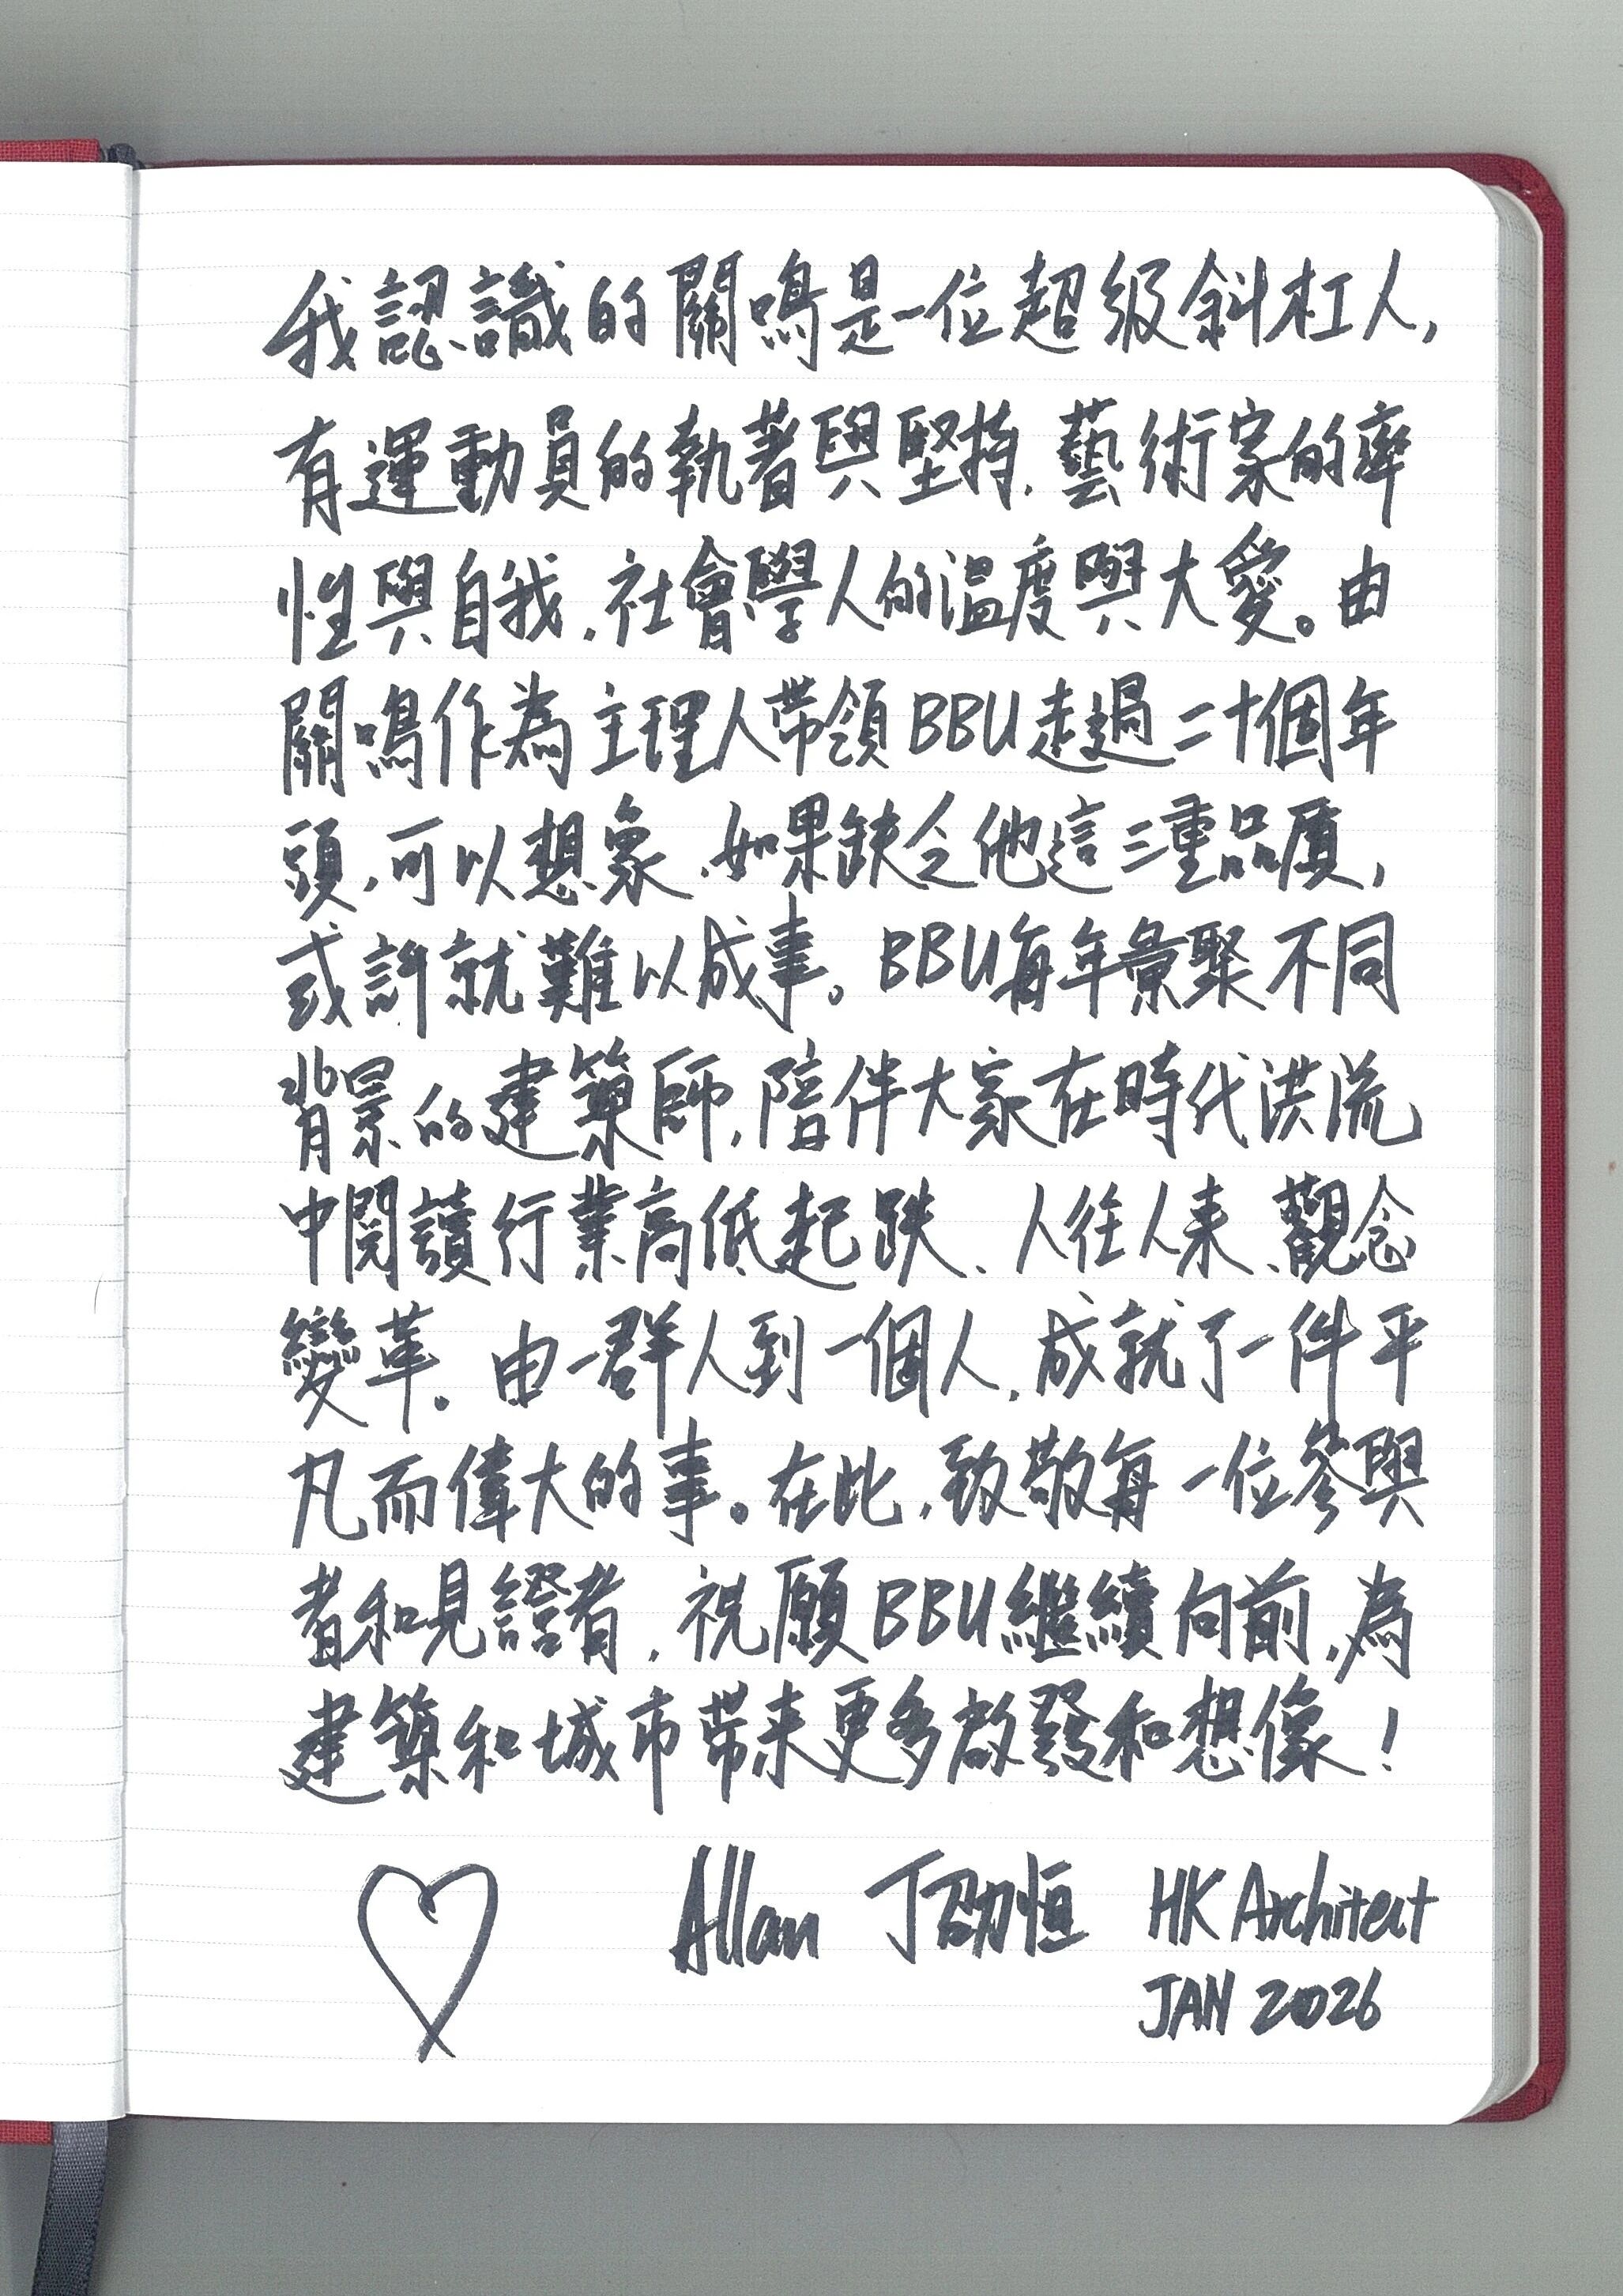 我認識的關鳴是一位超級斜杠人,
有運動員的執著與堅持、藝術家的率
性與自我、社會學人的溫度與大愛。由
關鳴作為主理人帶領BBU走過二十個年
頭,可以想象,如果缺乏他這三重品質,
或許就難以成事。BBU每年彙聚不同
背景的建築師,陪伴大家在時代洪流
中閱讀行業高低起跌、人往人来、觀念
變革。由一群人到一個人,成就了一件平
凡而偉大的事。在此,致敬每一位參與
者和見證者,祝願BBU繼續向前,為
建築和城市带来更多啟發和想像!
Allan 丁劭恒 HK Architect
JAN 2026